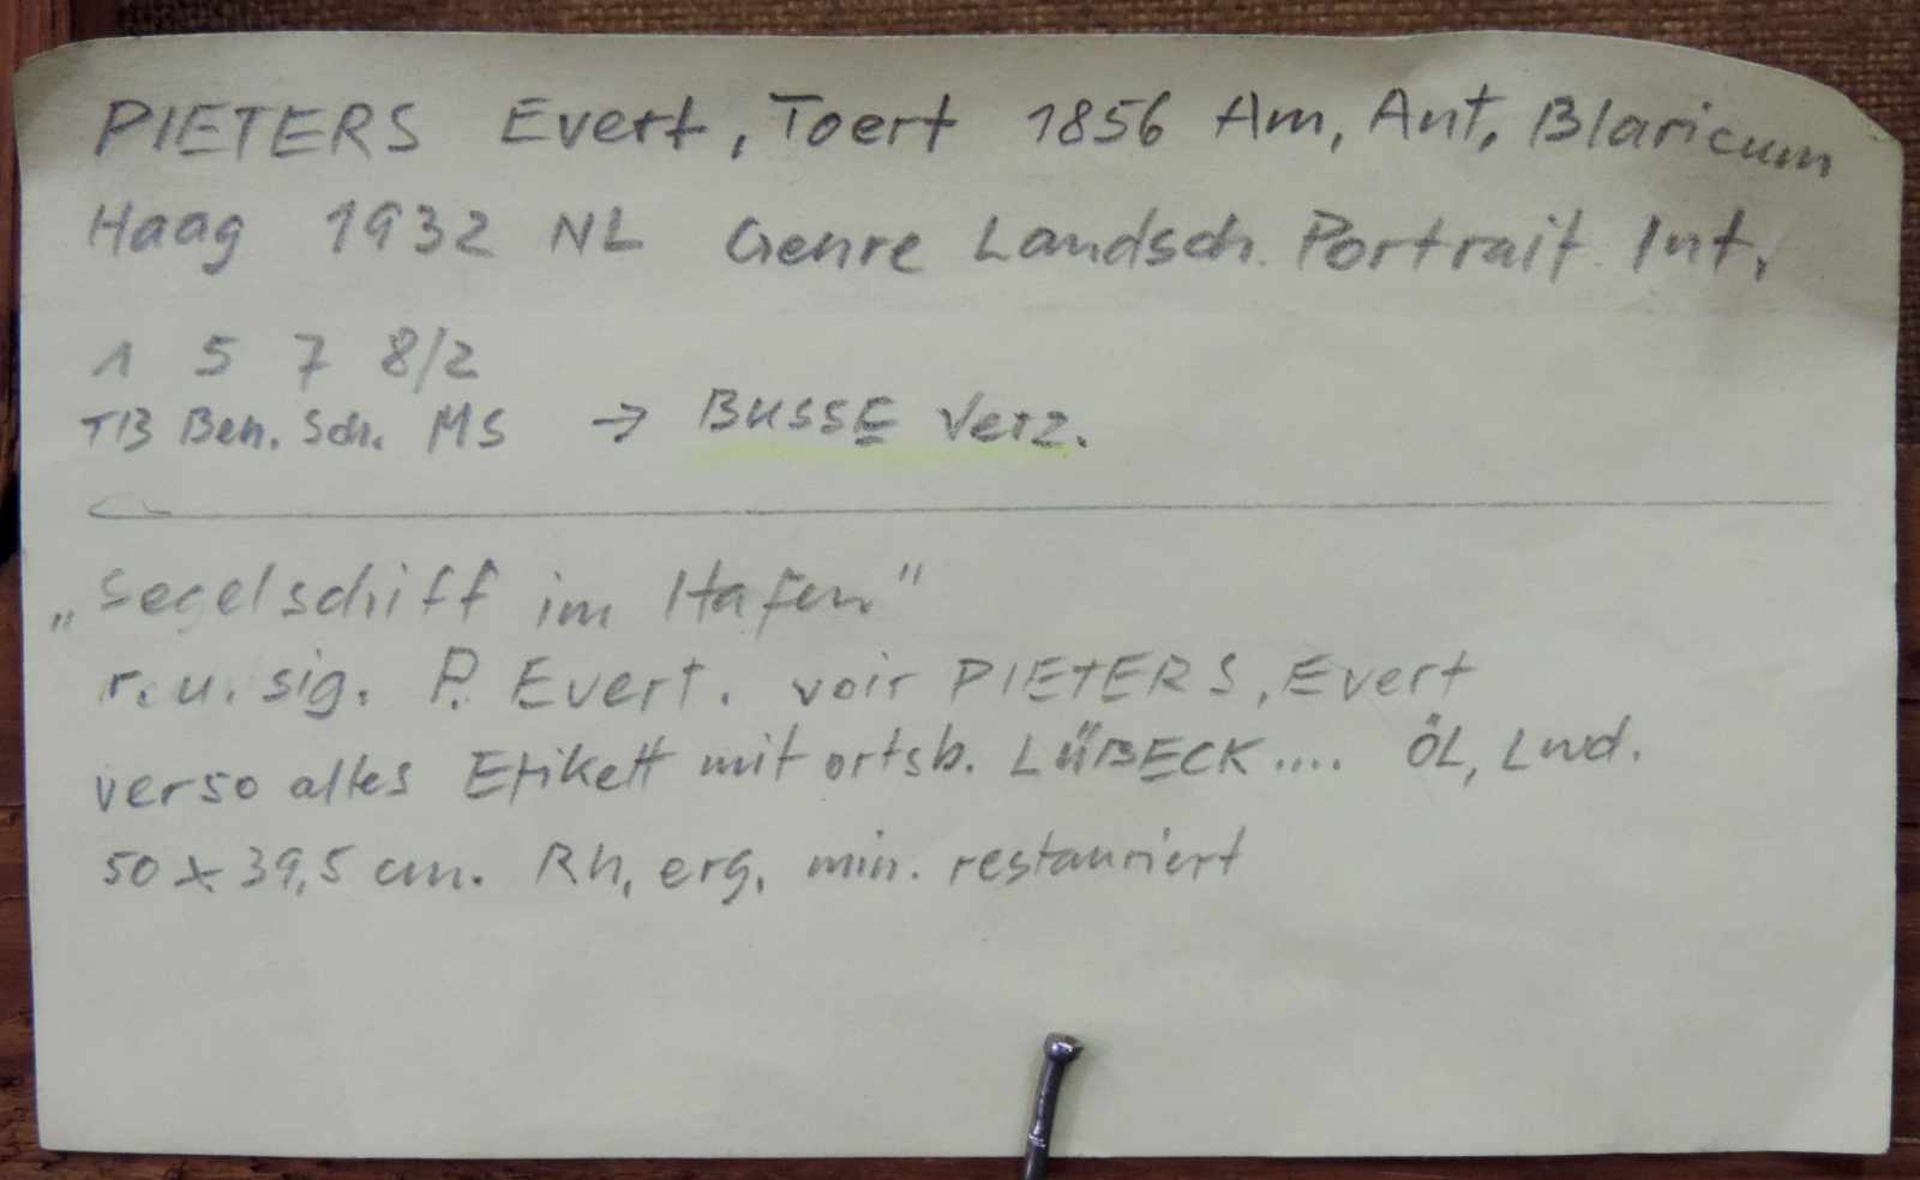 PIETERS Evert, Toert 1856 Am, Ant, Blaricum
Haag 1932 NL Genre Landsch. Portrait. Int.
1 5 7 8/2
TB Ben. Sch. MS → BUSSE Verz.
„Segelschiff im Hafen"
r. u. sig. P. Evert. voir PIETERS, Evert
verso altes Etikett mit ortsb. LÜBECK.... ÖL, Lwd.
50 x 39,5 cm. Rh, erg, min. restauriert